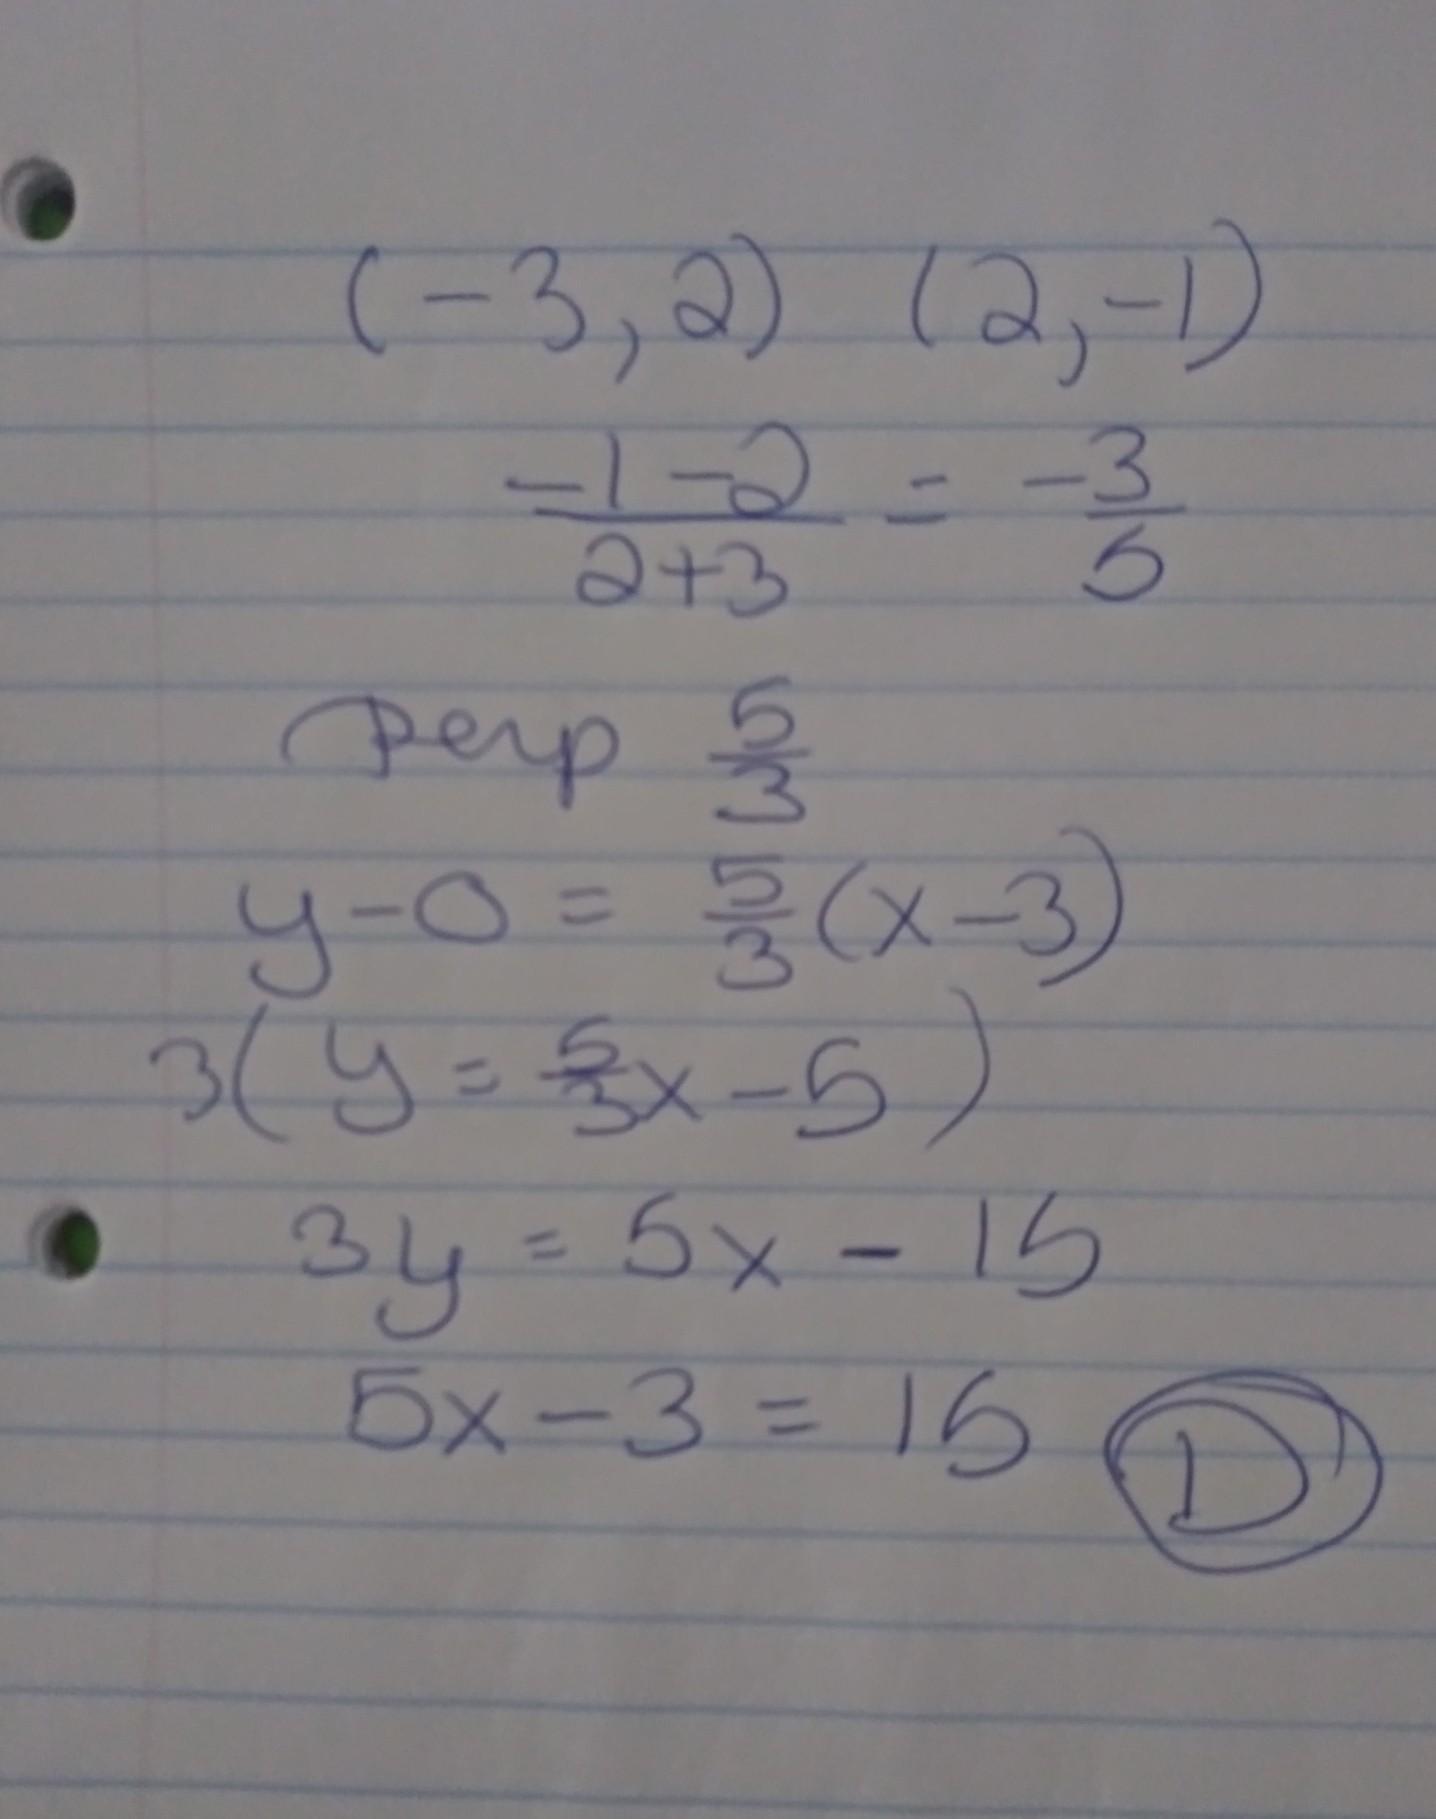 (-3, 2) (2, -1)
\frac{-1-2}{2+3} = \frac{-3}{5}
perp \frac{5}{3}
y-0 = \frac{5}{3}(x-3)
3(y = \frac{5}{3}x - 5)
3y = 5x - 15
5x - 3 = 15 D